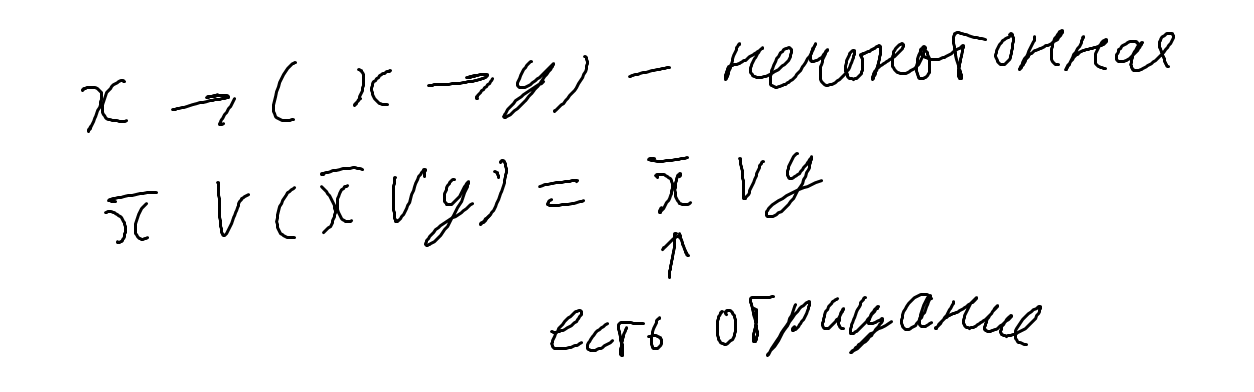 x → ( x → y ) – немонотонная
x̄ ∨ ( x̄ ∨ y ) = x̄ ∨ y
↑
есть отрицание